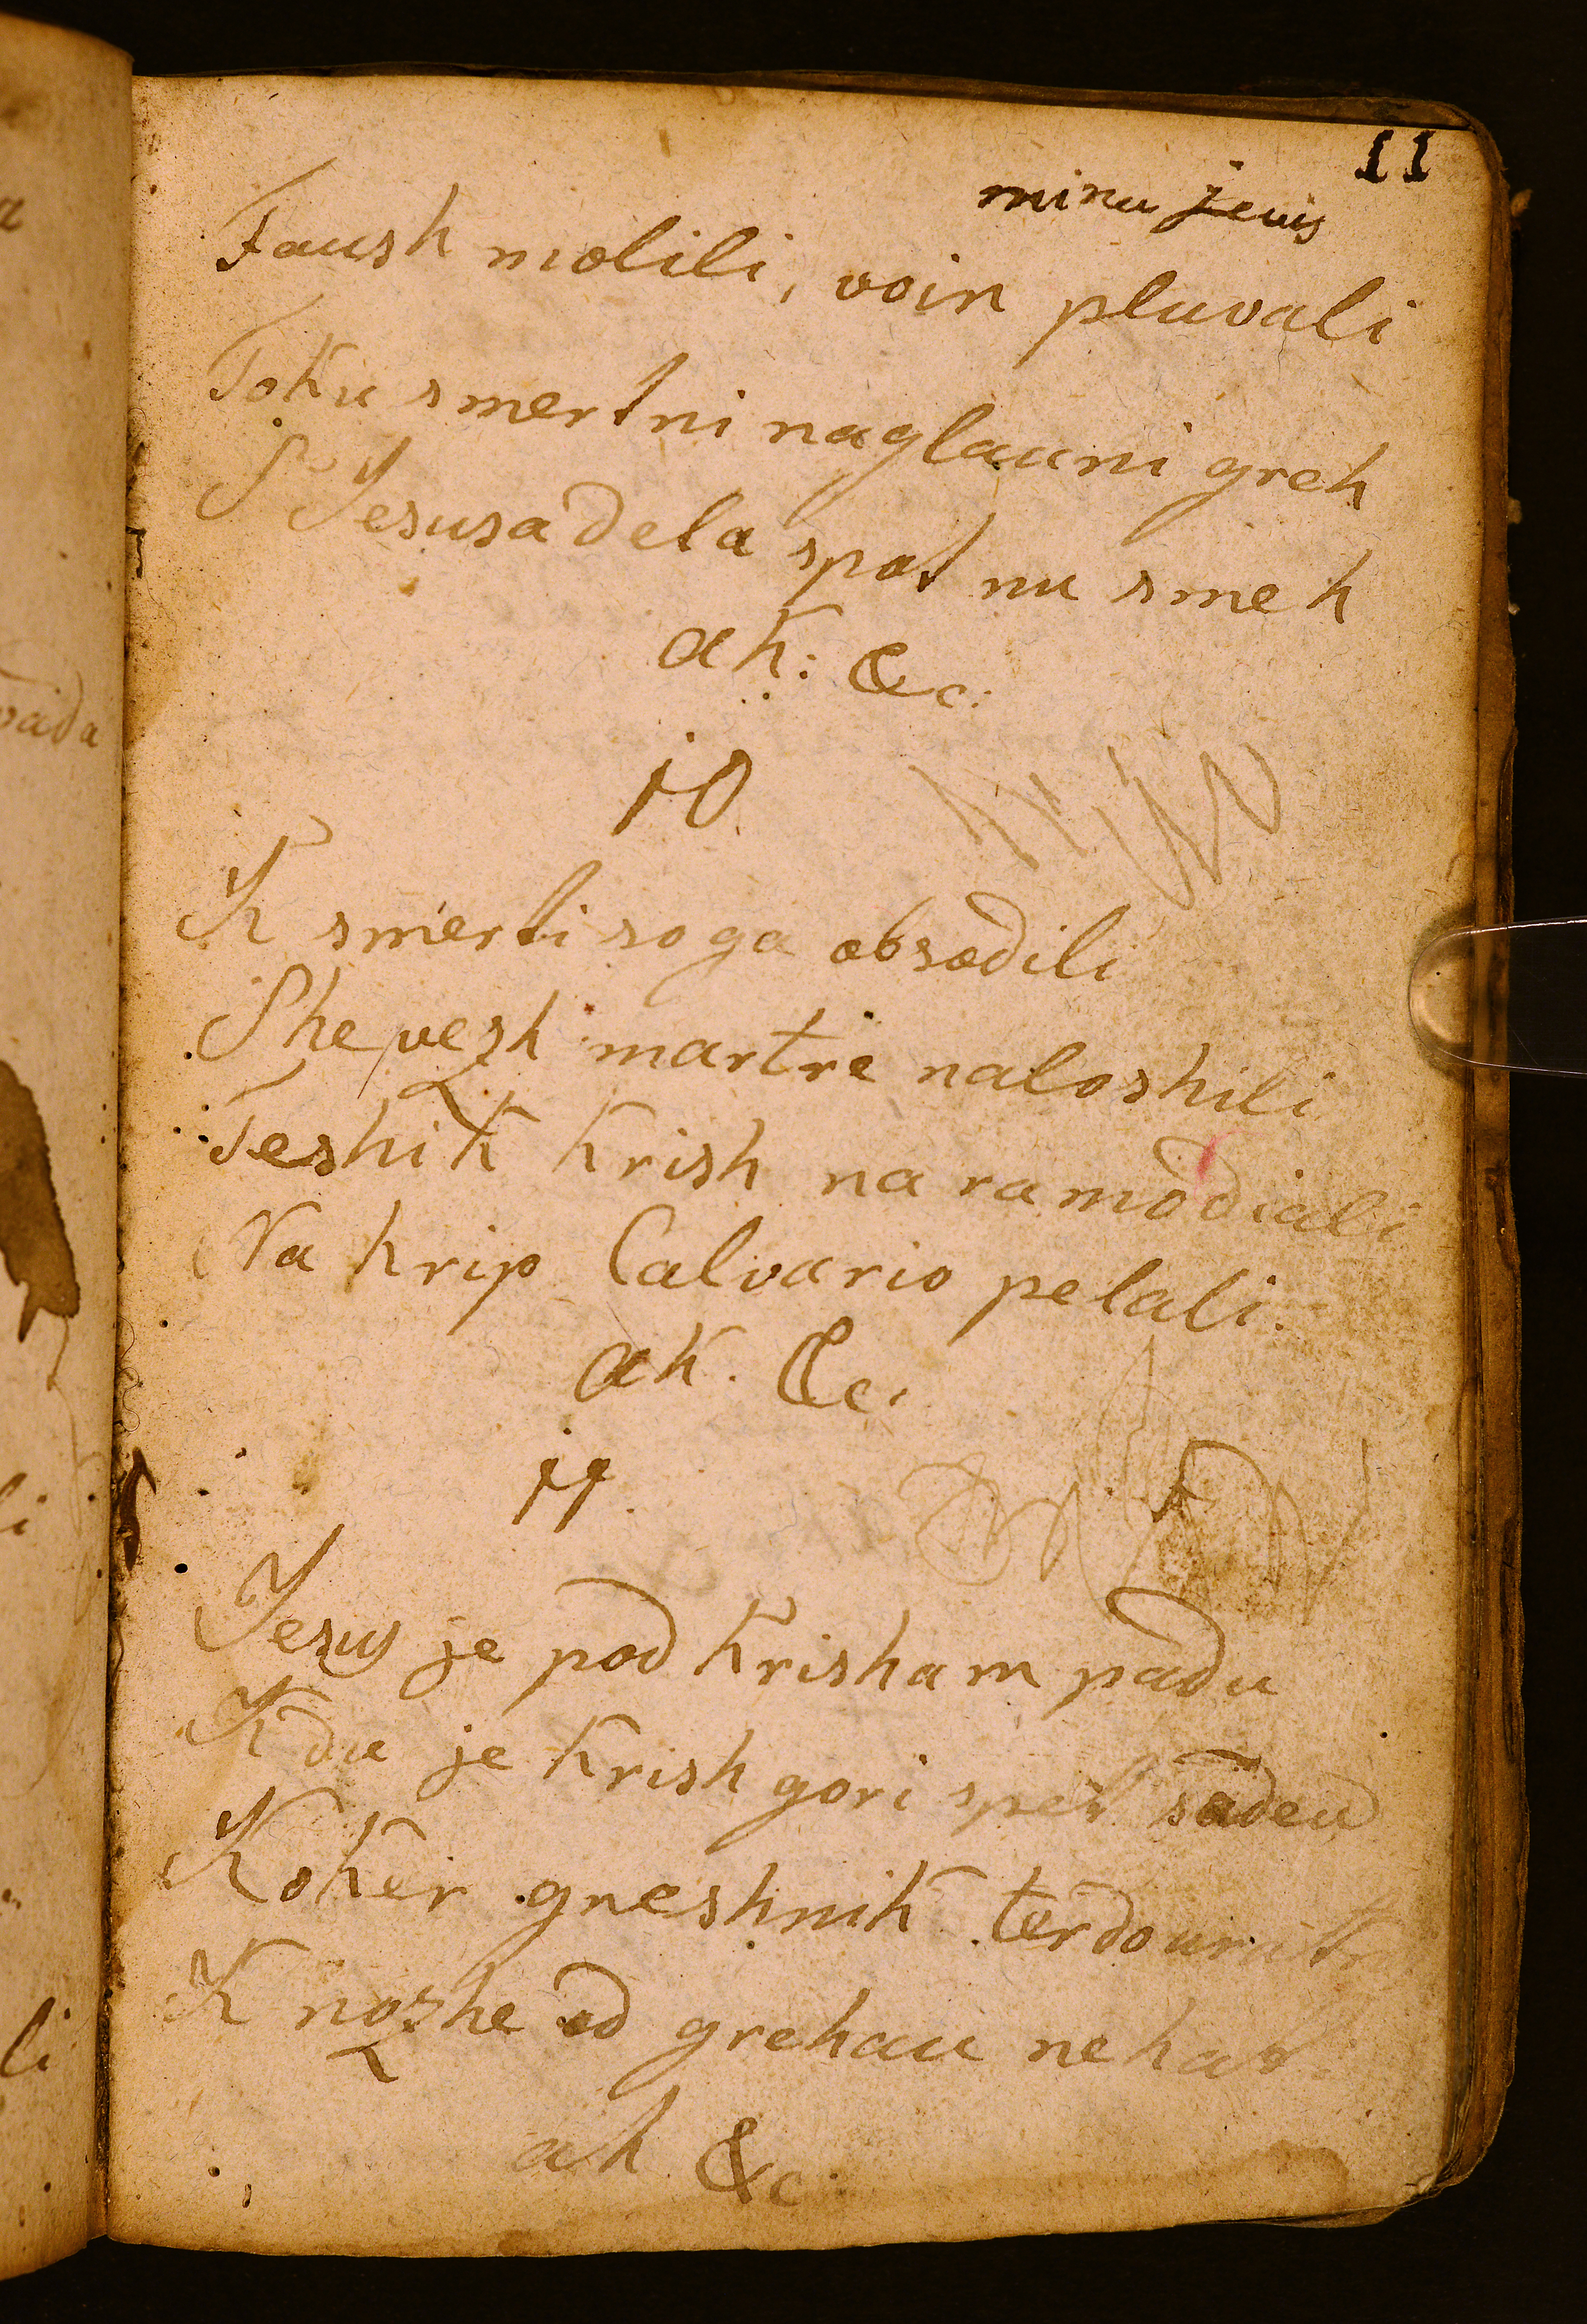 11
minu jeuis
Faush molili, voin pluvali
Toku smertni naglauni greh
S Jesusa dela spot nu smeh
ak: &c:
10
K smerti so ga obsodili
She vezh martre naloshili
Teshik krish na ramo diali
Na hrip Calvario pelali.
ak. &c.
11.
Jesus je pod krisham padu
Kdu je krish gori spet sadeu
Koker greshnik terdouri
K nozhe od grehau nehat
ah &c.